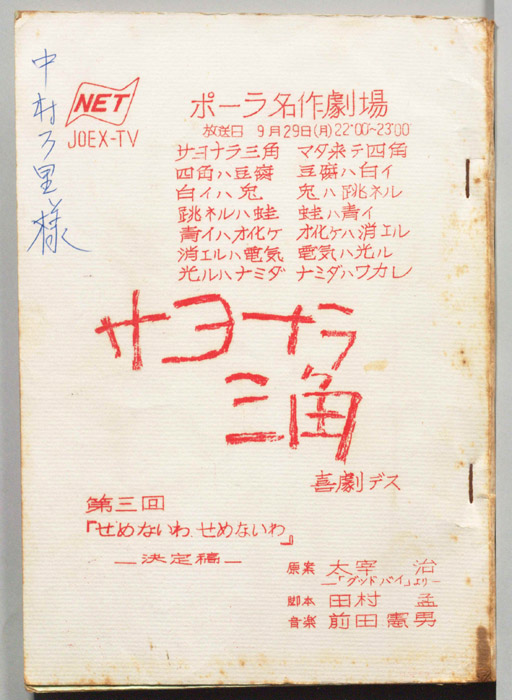 中村乃里様
NET
JOEX-TV
ポーラ名作劇場
放送日 9月29日(月)22:00~23:00
サヨナラ三角 マタ来テ四角
四角ハ豆腐 豆腐ハ白イ
白イハ兎 兎ハ跳ネル
跳ネルハ蛙 蛙ハ青イ
青イハオ化ケ オ化ケハ消エル
消エルハ電気 電気ハ光ル
光ルハナミダ ナミダハワカレ
サヨナラ
三角
喜劇デス
第三回
『せめないわ、せめないわ』
—決定稿—
原案 太宰 治
—「グッドバイ」ヨリ—
脚本 田村 孟
音楽 前田憲男